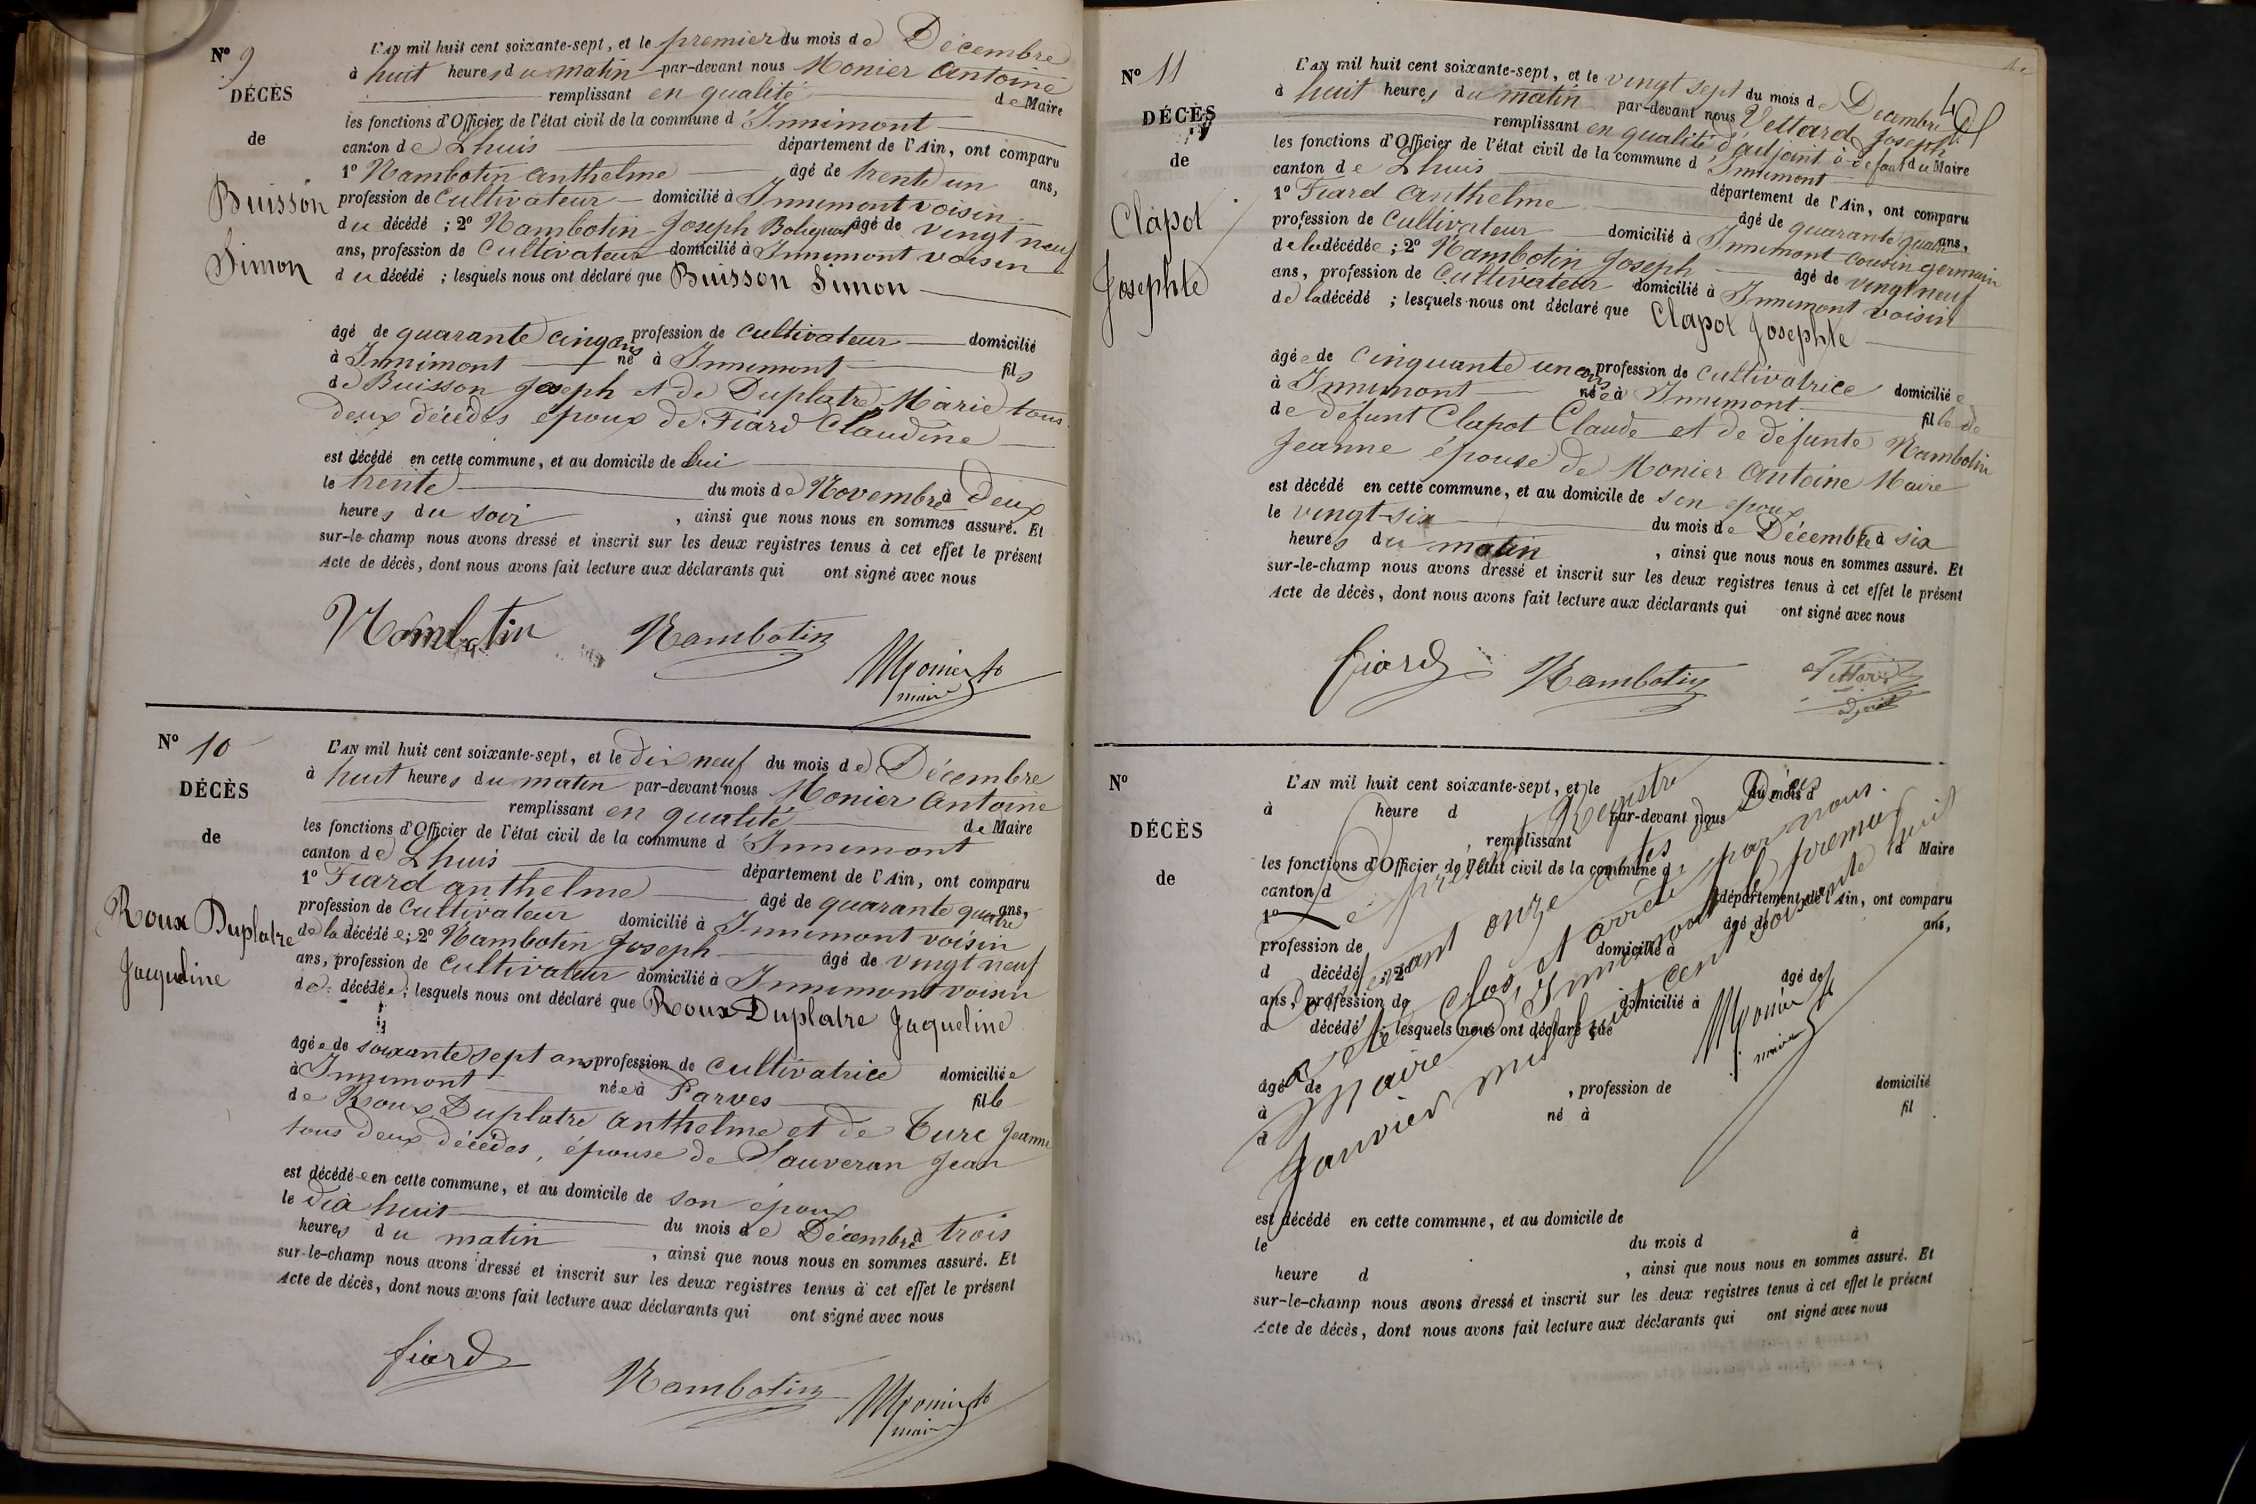 N° 9
DÉCÈS
de
Buisson
Simon
L'AN mil huit cent soixante-sept, et le premier du mois de Décembre
à huit heures du matin par-devant nous Monier Antoine
remplissant en qualité de Maire
les fonctions d'Officier de l'état civil de la commune d'Innimont
canton de Lhuis département de l'Ain, ont comparu
1° Nambotin Anthelme âgé de trente un ans,
profession de Cultivateur domicilié à Innimont voisin
du décédé ; 2° Nambotin Joseph âgé de vingt neuf
ans, profession de Cultivateur domicilié à Innimont voisin
du décédé ; lesquels nous ont déclaré que Buisson Simon
âgé de quarante cinq ans profession de Cultivateur domicilié
à Innimont né à Innimont fils
de Buisson Joseph et de Duplatre Marie tous
deux décédés époux de Fiard Claudine
est décédé en cette commune, et au domicile de lui
le trente du mois de Novembre à deux
heures du soir , ainsi que nous nous en sommes assuré. Et
sur-le-champ nous avons dressé et inscrit sur les deux registres tenus à cet effet le présent
Acte de décès, dont nous avons fait lecture aux déclarants qui ont signé avec nous
Nambotin Nambotin Monier
maire
N° 10
DÉCÈS
de
Roux Duplatre
Jaqueline
L'AN mil huit cent soixante-sept, et le dix neuf du mois de Décembre
à huit heures du matin par-devant nous Monier Antoine
remplissant en qualité de Maire
les fonctions d'Officier de l'état civil de la commune d'Innimont
canton de Lhuis département de l'Ain, ont comparu
1° Fiard anthelme âgé de quarante quatre ans,
profession de Cultivateur domicilié à Innimont voisin
de la décédée ; 2° Nambotin Joseph âgé de vingt neuf
ans, profession de Cultivateur domicilié à Innimont voisin
de décédée ; lesquels nous ont déclaré que Roux Duplatre Jaqueline
âgée de soixante sept ans profession de Cultivatrice domiciliée
à Innimont née à Parves fille
de Roux Duplatre Anthelme et de Turc Jeanne
tous deux décédés, épouse de Sauveran Jean
est décédée en cette commune, et au domicile de son époux
le dix huit du mois de Décembre à trois
heures du matin , ainsi que nous nous en sommes assuré. Et
sur-le-champ nous avons dressé et inscrit sur les deux registres tenus à cet effet le présent
Acte de décès, dont nous avons fait lecture aux déclarants qui ont signé avec nous
fiard Nambotin Monier
maire
N° 11
DÉCÈS
de
Clapot
Josephte
L'AN mil huit cent soixante-sept, et le vingt sept du mois de Decembre
à huit heures du matin par-devant nous Vettard Joseph
remplissant en qualité d'adjoint à defaut du Maire
les fonctions d'Officier de l'état civil de la commune d'Innimont
canton de Lhuis département de l'Ain, ont comparu
1° Fiard Anthelme âgé de quarante quatre ans,
profession de Cultivateur domicilié à Innimont cousin germain
de la décédée ; 2° Nambotin Joseph âgé de vingt neuf
ans, profession de Cultivateur domicilié à Innimont voisin
de la décédé ; lesquels nous ont déclaré que Clapot Josephte
âgée de cinquante un ans profession de Cultivatrice domiciliée
à Innimont née à Innimont fille de
de défunt Clapot Claude et de défunte Nambotin
Jeanne épouse de Monier Antoine Maire
est décédé en cette commune, et au domicile de son époux
le vingt-six du mois de Décembre à six
heures du matin , ainsi que nous nous en sommes assuré. Et
sur-le-champ nous avons dressé et inscrit sur les deux registres tenus à cet effet le présent
Acte de décès, dont nous avons fait lecture aux déclarants qui ont signé avec nous
fiard Nambotin Vettard
adjoint
N°
DÉCÈS
de
L'AN mil huit cent soixante-sept, et le du mois d
à heure d par-devant nous
remplissant d Maire
les fonctions d'Officier de l'état civil de la commune d
canton d département de l'Ain, ont comparu
1° âgé de ans,
profession de domicilié à
d décédé ; 2° âgé de
ans, profession de domicilié à
d décédé ; lesquels nous ont déclaré que
âgé de , profession de domicilié
à né à fil
d
est décédé en cette commune, et au domicile de
le du mois d à
heure d , ainsi que nous nous en sommes assuré. Et
sur-le-champ nous avons dressé et inscrit sur les deux registres tenus à cet effet le présent
Acte de décès, dont nous avons fait lecture aux déclarants qui ont signé avec nous
Le présent Registre
Contenant onze actes de Décès
a été clos et arrêté par nous
Maire d'Innimont le premier
Janvier mil huit cent soixante huit
Monier
maire